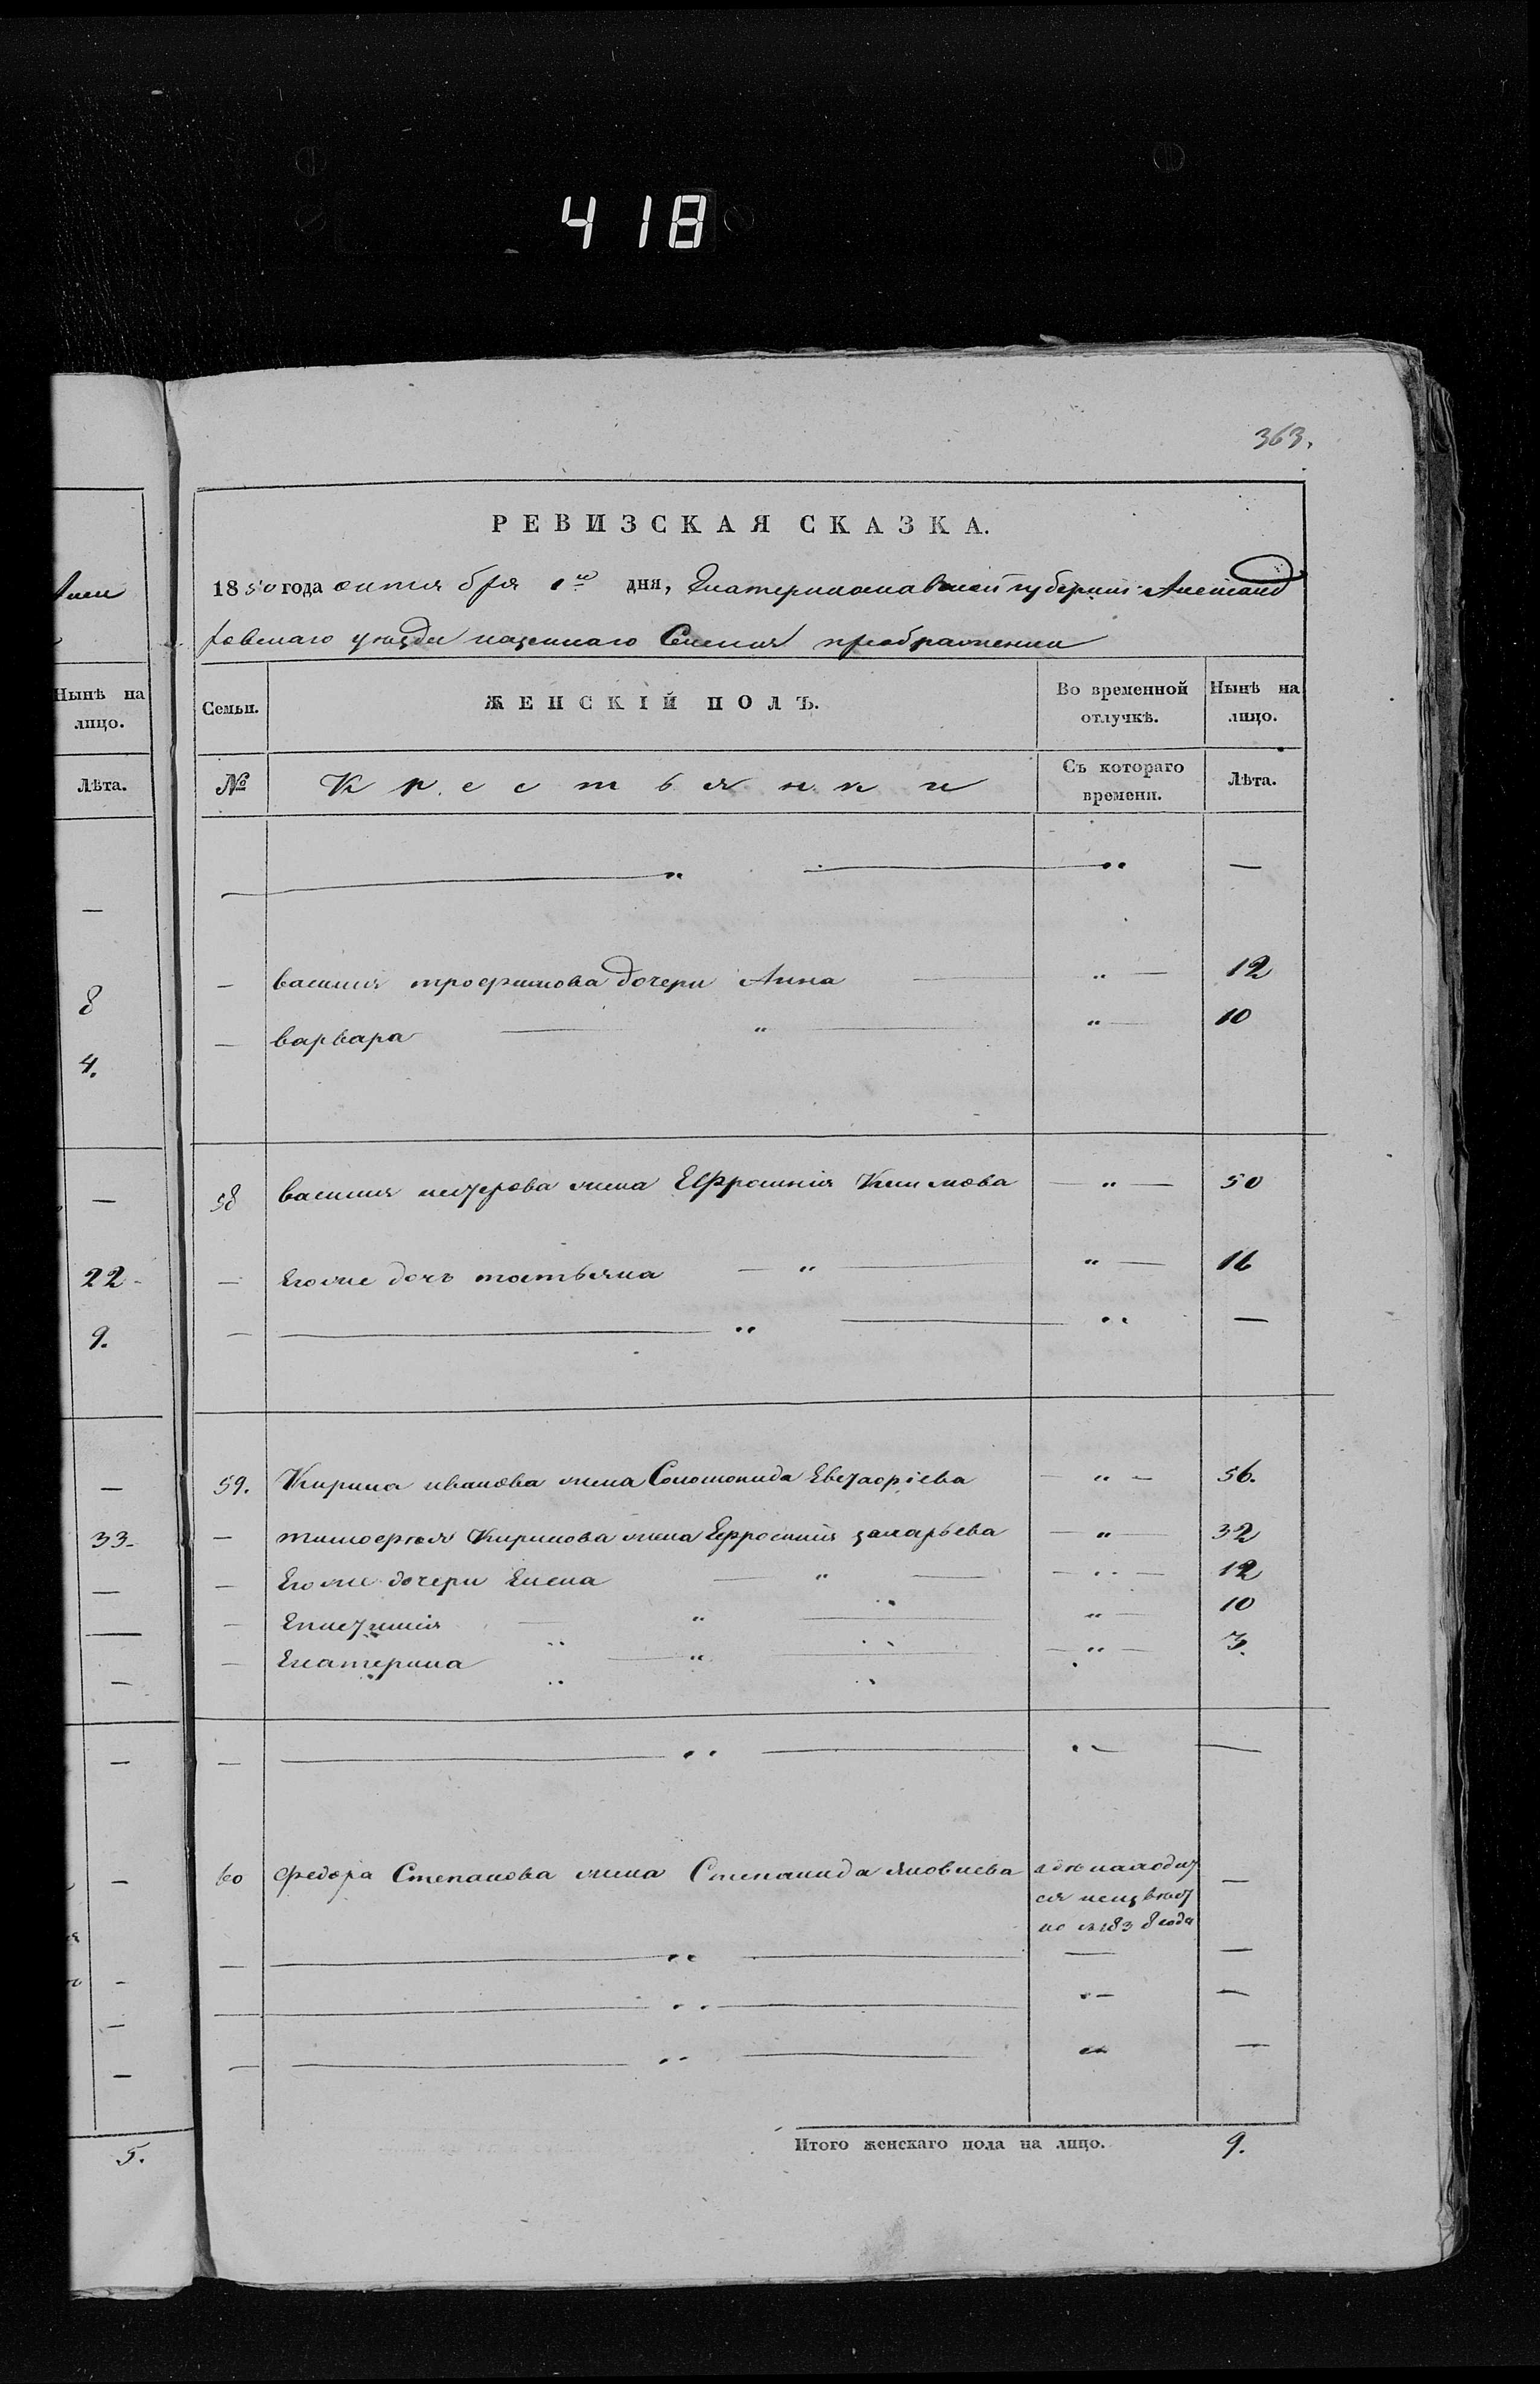 418
363.
РЕВИЗСКАЯ СКАЗКА.
1850 года октября 1го дня, Екатеринославской губернии Александ
ровскаго уезда казеннаго Селения преображенки
Нынѣ на лицо.
Семьи.
ЖЕНСКІЙ ПОЛЪ.
Во временной отлучкѣ.
Нынѣ на лицо.
Лѣта.
№
Крестьянки
Съ котораго времени.
Лѣта.
— " — " —
8
— василия трофимова дочери Анна — " — 12
4.
— варвара — " — " — 10
58 василия петрова жена Ефросиния Климова — " — 50
22
— Егоже дочь татьяна — " — " — 16
9.
— " — " —
59. Кирила иванова жена Соломонида Евстафіева — " — 56.
33
— тимофея Кирилова жена Ефросиния захарьева — " — 32
— Егоже дочери Елена — " — " — 12
— Епистимия — " — " — 10
— Екатерина — " — " — 3.
— " — " —
60 федора Степанова жена Степанида яковлева где находит
ся неизвест
но с 1838 года —
— " — — —
— " — " —
— " — " —
5.
Итого женскаго пола на лицо. 9.